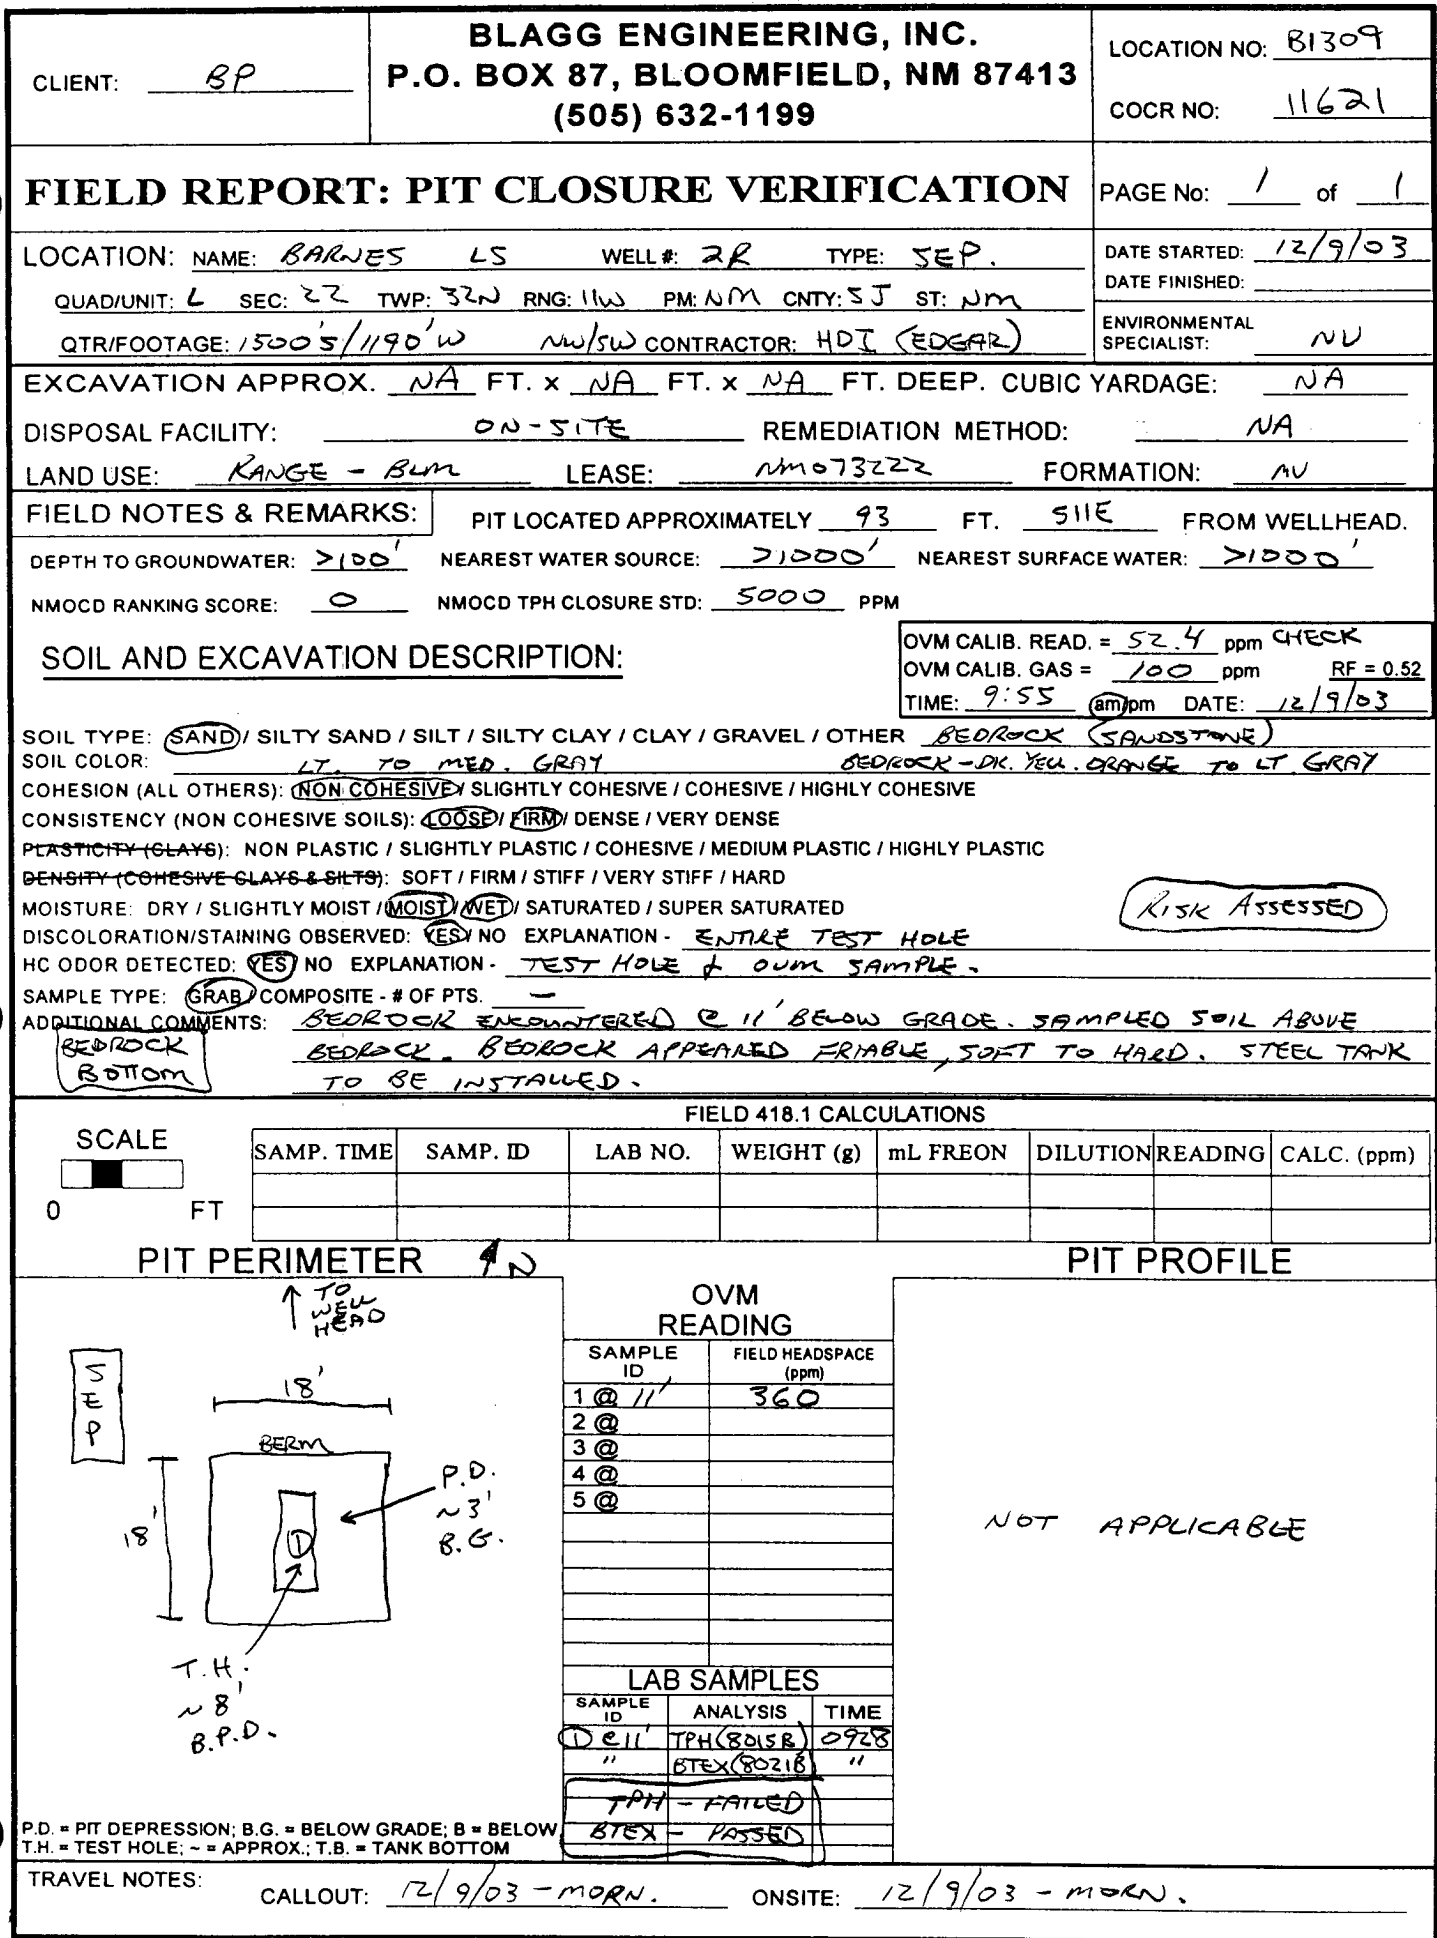 BLAGG ENGINEERING, INC.
P.O. BOX 87, BLOOMFIELD, NM 87413
(505) 632-1199
CLIENT: BP
LOCATION NO: B1309
COCR NO: 11621
FIELD REPORT: PIT CLOSURE VERIFICATION
PAGE No: 1 of 1
LOCATION: NAME: BARNES LS WELL #: 2R TYPE: SEP.
QUAD/UNIT: L SEC: 22 TWP: 32N RNG: 11W PM: NM CNTY: SJ ST: NM
QTR/FOOTAGE: 1500'S/1190'W NW/SW CONTRACTOR: HDI (EDGAR)
DATE STARTED: 12/9/03
DATE FINISHED:
ENVIRONMENTAL SPECIALIST: NV
EXCAVATION APPROX. NA FT. x NA FT. x NA FT. DEEP. CUBIC YARDAGE: NA
DISPOSAL FACILITY: ON-SITE REMEDIATION METHOD: NA
LAND USE: RANGE - BLM LEASE: NM073222 FORMATION: MV
FIELD NOTES & REMARKS: PIT LOCATED APPROXIMATELY 93 FT. S11E FROM WELLHEAD.
DEPTH TO GROUNDWATER: >100' NEAREST WATER SOURCE: >1000' NEAREST SURFACE WATER: >1000'
NMOCD RANKING SCORE: 0 NMOCD TPH CLOSURE STD: 5000 PPM
SOIL AND EXCAVATION DESCRIPTION:
OVM CALIB. READ. = 52.4 ppm CHECK
OVM CALIB. GAS = 100 ppm RF = 0.52
TIME: 9:55 am/pm DATE: 12/9/03
SOIL TYPE: SAND / SILTY SAND / SILT / SILTY CLAY / CLAY / GRAVEL / OTHER BEDROCK (SANDSTONE)
SOIL COLOR: LT. TO MED. GRAY BEDROCK - DK. YELL. ORANGE TO LT. GRAY
COHESION (ALL OTHERS): NON COHESIVE / SLIGHTLY COHESIVE / COHESIVE / HIGHLY COHESIVE
CONSISTENCY (NON COHESIVE SOILS): LOOSE / FIRM / DENSE / VERY DENSE
PLASTICITY (CLAYS): NON PLASTIC / SLIGHTLY PLASTIC / COHESIVE / MEDIUM PLASTIC / HIGHLY PLASTIC
DENSITY (COHESIVE CLAYS & SILTS): SOFT / FIRM / STIFF / VERY STIFF / HARD
MOISTURE: DRY / SLIGHTLY MOIST / MOIST / WET / SATURATED / SUPER SATURATED
RISK ASSESSED
DISCOLORATION/STAINING OBSERVED: YES / NO EXPLANATION - ENTIRE TEST HOLE
HC ODOR DETECTED: YES / NO EXPLANATION - TEST HOLE & OVM SAMPLE.
SAMPLE TYPE: GRAB / COMPOSITE - # OF PTS. —
ADDITIONAL COMMENTS: BEDROCK ENCOUNTERED @ 11' BELOW GRADE. SAMPLED SOIL ABOVE
BEDROCK. BEDROCK APPEARED FRIABLE, SOFT TO HARD. STEEL TANK
TO BE INSTALLED.
BEDROCK
BOTTOM
FIELD 418.1 CALCULATIONS
SCALE
0 FT
SAMP. TIME SAMP. ID LAB NO. WEIGHT (g) mL FREON DILUTION READING CALC. (ppm)
PIT PERIMETER N
TO
WELL
HEAD
SEP
18'
BERM
18'
P.D.
~3'
B.G.
1
T.H.
~8'
B.P.D.
P.D. = PIT DEPRESSION; B.G. = BELOW GRADE; B = BELOW
T.H. = TEST HOLE; ~ = APPROX.; T.B. = TANK BOTTOM
OVM
READING
SAMPLE ID FIELD HEADSPACE (ppm)
1 @ 11' 360
2 @
3 @
4 @
5 @
LAB SAMPLES
SAMPLE ID ANALYSIS TIME
1 @ 11' TPH (8015B) 0928
" BTEX (8021B) "
TPH - FAILED
BTEX - PASSED
PIT PROFILE
NOT APPLICABLE
TRAVEL NOTES: CALLOUT: 12/9/03 - MORN. ONSITE: 12/9/03 - MORN.